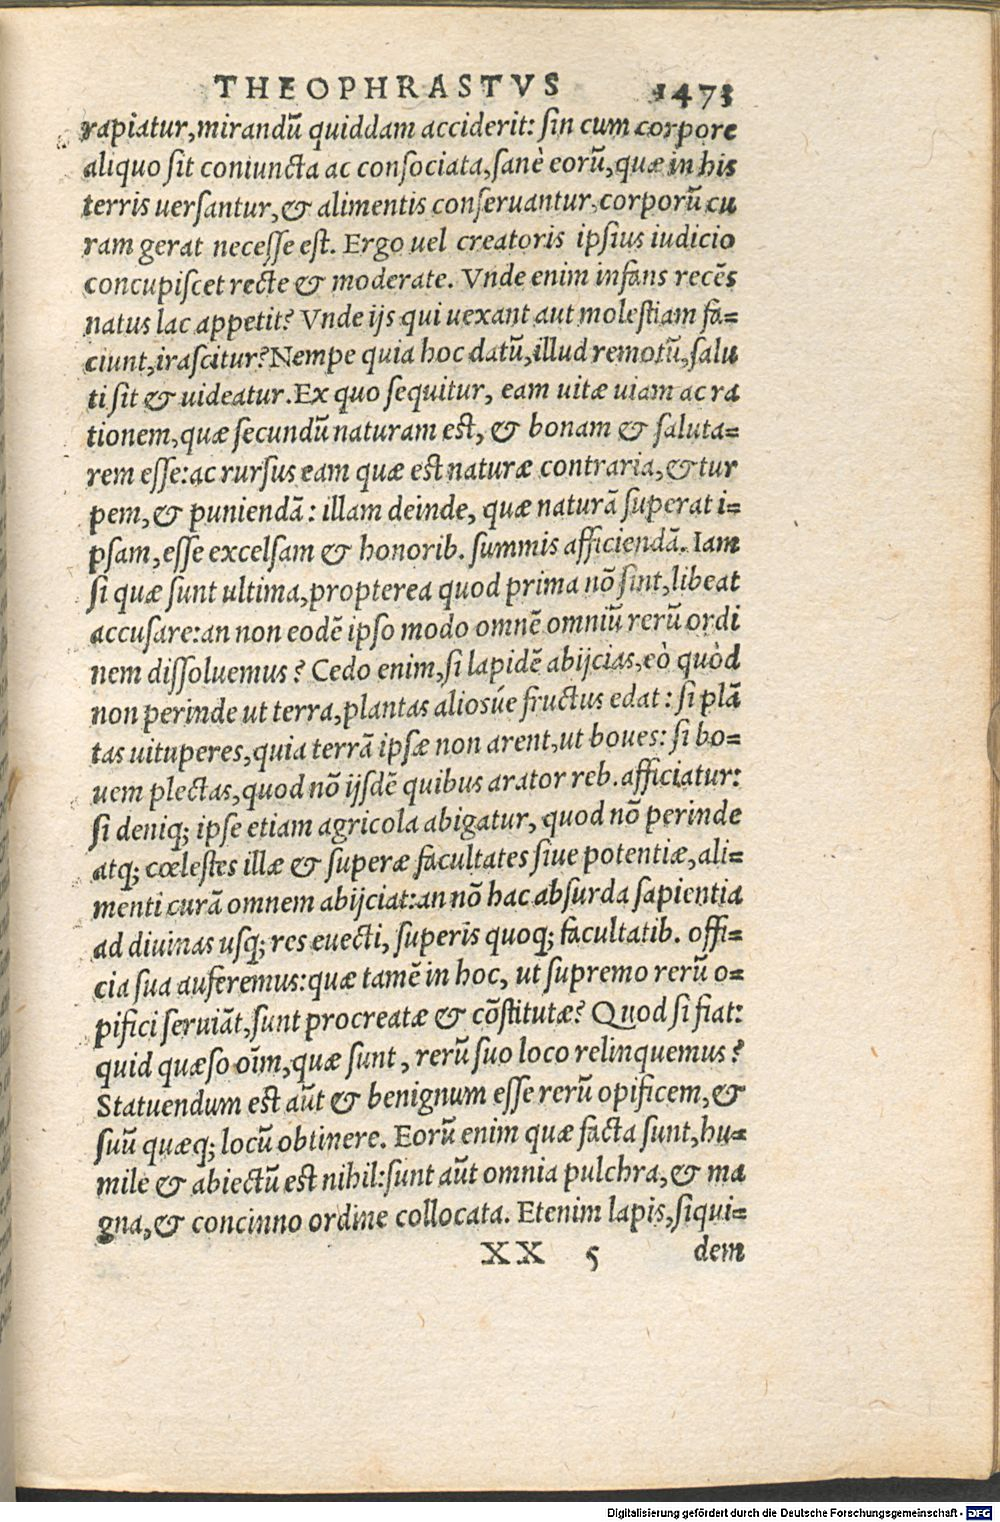 THEOPHRASTVS 1473
rapiatur, mirandũ quiddam acciderit: ſin cum corpore
aliquo ſit coniuncta ac conſociata, ſanè eorũ, quæ in his
terris uerſantur, & alimentis conſeruantur, corporũ cu
ram gerat neceſſe eſt. Ergo uel creatoris ipſius iudicio
concupiſcet recte & moderate. Vnde enim infans recẽs
natus lac appetit? Vnde ijs qui uexant aut moleſtiam fa=
ciunt, iraſcitur? Nempe quia hoc datũ, illud remotũ, ſalu
ti ſit & uideatur. Ex quo ſequitur, eam uitæ uiam ac ra
tionem, quæ ſecundũ naturam eſt, & bonam & ſaluta=
rem eſſe: ac rurſus eam quæ eſt naturæ contraria, & tur
pem, & puniendã: illam deinde, quæ naturã ſuperat i=
pſam, eſſe excelſam & honorib. ſummis afficiendã. Iam
ſi quæ ſunt ultima, propterea quod prima nõ ſint, libeat
accuſare: an non eodẽ ipſo modo omnẽ omniũ rerũ ordi
nem diſſoluemus? Cedo enim, ſi lapidẽ abijcias, eò quòd
non perinde ut terra, plantas alioſúe fructus edat: ſi plã
tas uituperes, quia terrã ipſæ non arent, ut boues: ſi bo=
uem plectas, quod nõ ijſdẽ quibus arator reb. afficiatur:
ſi deniq; ipſe etiam agricola abigatur, quod nõ perinde
atq; cœleſtes illæ & ſuperæ facultates ſiue potentiæ, ali=
menti curã omnem abijciat: an nõ hac abſurda ſapientia
ad diuinas uſq; res euecti, ſuperis quoq; facultatib. offi=
cia ſua auferemus: quæ tamẽ in hoc, ut ſupremo rerũ o=
pifici ſeruiãt, ſunt procreatæ & cõſtitutæ? Quod ſi fiat:
quid quæſo oĩm, quæ ſunt, rerũ ſuo loco relinquemus?
Statuendum eſt aũt & benignum eſſe rerũ opificem, &
ſuũ quæq; locũ obtinere. Eorũ enim quæ facta ſunt, hu=
mile & abiectũ eſt nihil: ſunt aũt omnia pulchra, & ma
gna, & concinno ordine collocata. Etenim lapis, ſiqui=
XX 5 dem
Digitalisierung gefördert durch die Deutsche Forschungsgemeinschaft - DFG